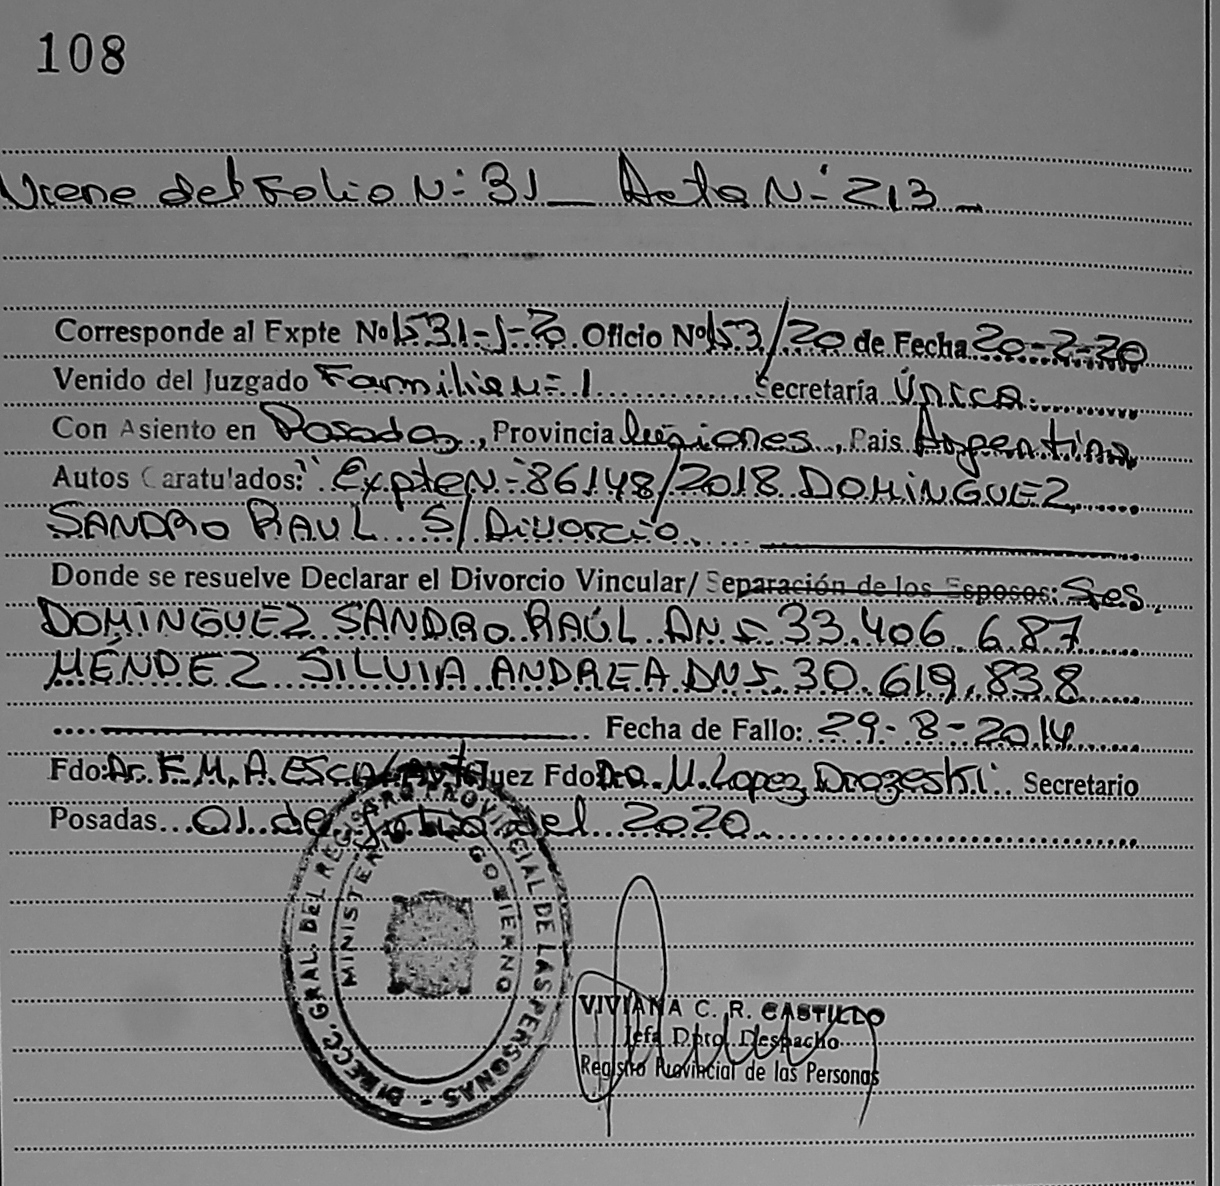 108
Viene del Folio Nº 31 _ Acta Nº 213 _
Corresponde al Expte Nº 1531-J-20 Oficio Nº 153/20 de Fecha 20-2-20
Venido del Juzgado Familia Nº 1 Secretaría Única.
Con Asiento en Posadas, Provincia Misiones, Pais Argentina
Autos Caratulados: "Expte Nº 86148/2018 DOMINGUEZ
SANDRO RAUL S/ Divorcio.
Donde se resuelve Declarar el Divorcio Vincular/ Separación de los Esposos: Sres.
DOMINGUEZ SANDRO RAÚL DNI 33.406.687
MÉNDEZ SILVIA ANDREA DNI 30.619.838
Fecha de Fallo: 29-8-2014
Fdo: Dr. F.M.A. ESCALANTE Juez Fdo Dra. M. Lopez Drozeski. Secretario
Posadas 01 de Julio del 2020.
DIRECC. GRAL. DEL REGISTRO PROVINCIAL DE LAS PERSONAS -
MINISTERIO DE GOBIERNO
VIVIANA C. R. CASTILLO
Jefa Dpto. Despacho
Registro Provincial de las Personas